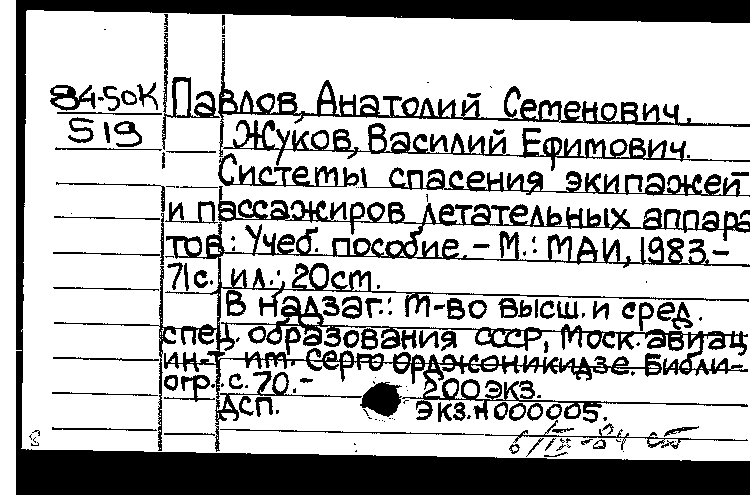 84-50К Павлов, Анатолий Семенович.
519 Жуков, Василий Ефимович.
Системы спасения экипажей
и пассажиров летательных аппара
тов: Учеб. пособие. – М.: МАИ, 1983. –
71с. ил.; 20ст.
В надзаг.: М-во высш. и сред.
спец. образования СССР, Моск. авиац
ин-т им. Серго Орджоникидзе. Библи-
огр.: с. 70. – 200 экз.
ДСП. Экз. N 000005.
8 6/IX-84